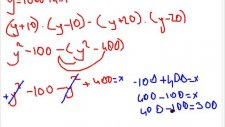 (y+10).(y-10)-(y+20).(y-20)
y²-100-(y²-400)
+y²-100-y²+400=x
-100+400=x
400-100=x
400-100=300